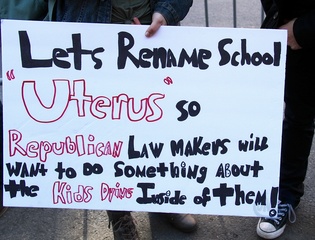 Lets Rename School
"Uterus" so
Republican Law makers will
want to do something about
the Kids Dying Inside of them!